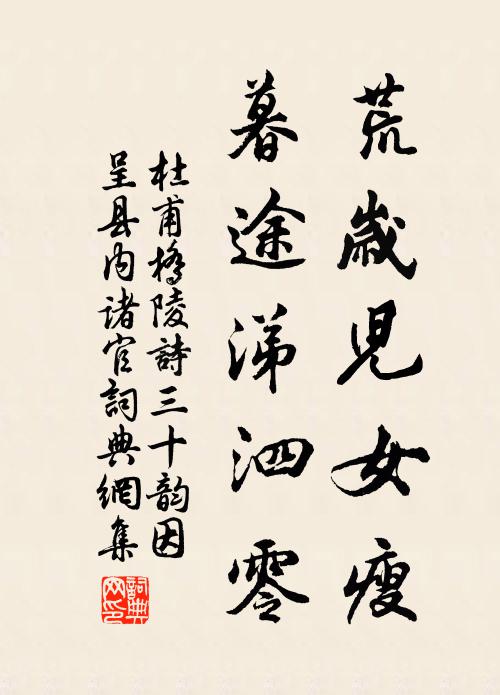 荒歲児女瘦
暮途涕泗零
杜甫橋陵詩三十韵因
呈县内诸官詞典網集
詞典
网印